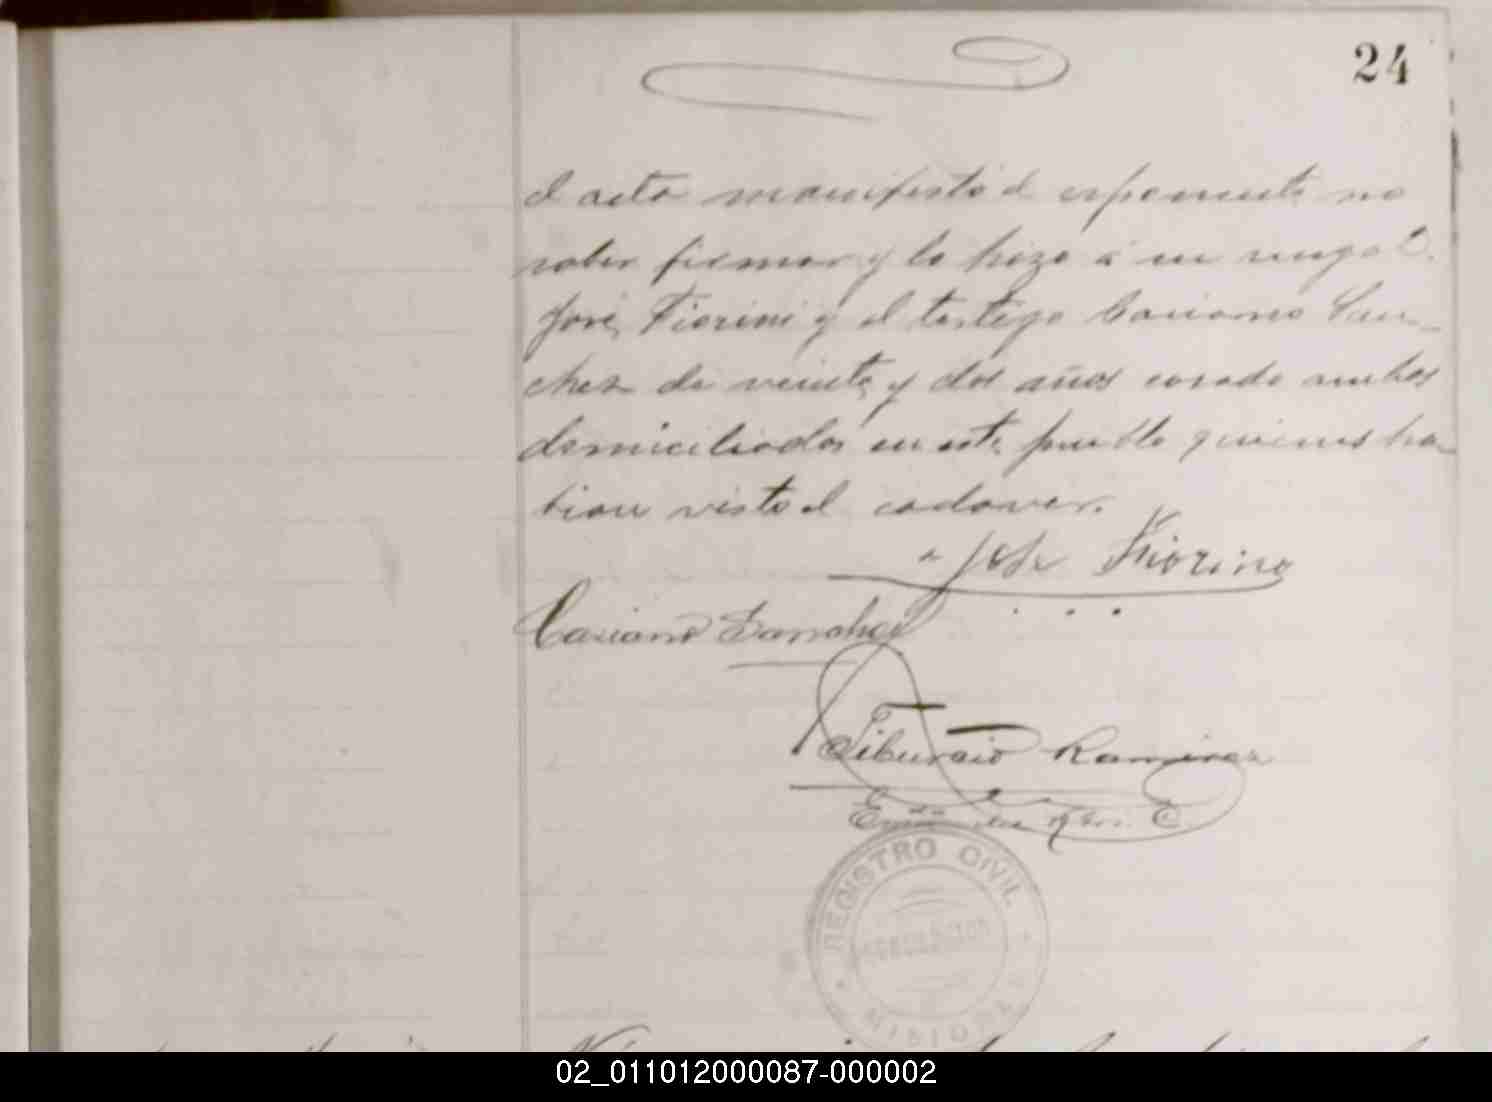 24
el acto manifestó el esponente no
saber firmar y lo hizo á su ruego D.
José Fiorini y el testigo Casiano San-
chez de veinte y dos años casado ambos
domiciliados en este pueblo quienes ha-
bian visto el cadaver.
José Fiorino
Casiano Sanchez
Tiburcio Ramirez
REGISTRO CIVIL
MISIONES
02_011012000087-000002